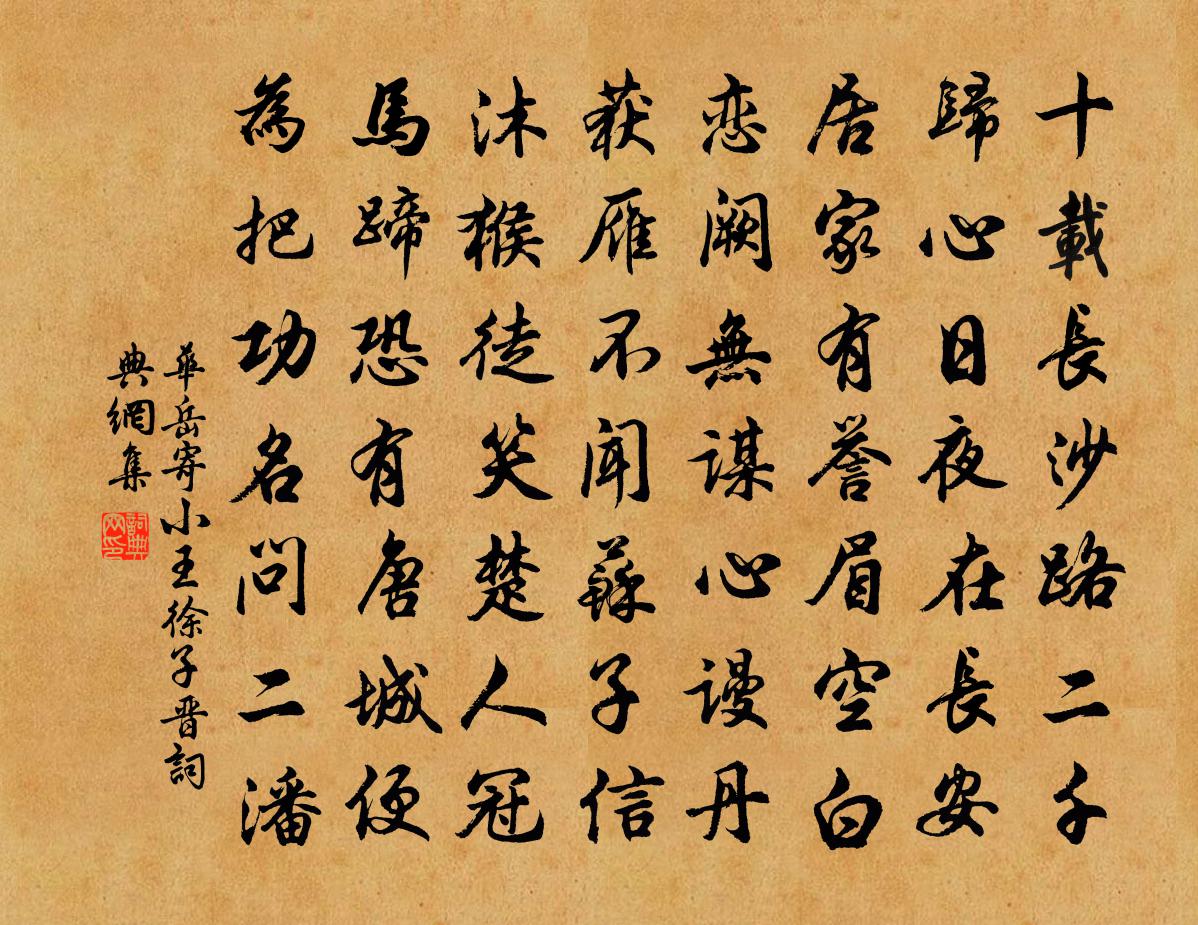 十載長沙路二千
歸心日夜在長安
居家有譽眉空白
恋阙無谋心謾丹
获雁不闻蘇子信
沐猴徒笑楚人冠
馬蹄恐有唐城便
為把功名問二潘
華岳寄小王徐子晋詞
典網集
詞典
网印